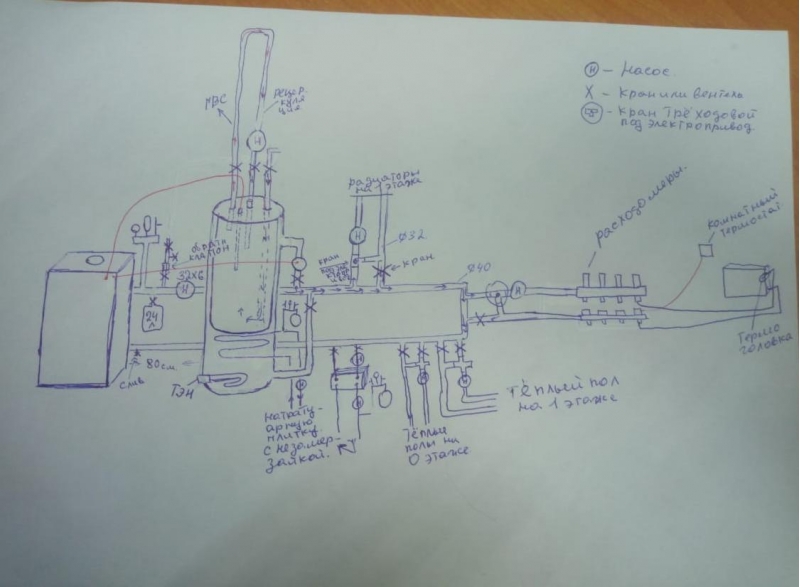 Н - Насос.
X - Кран или вентиль
- Кран трёхходовой
под электропривод.
ГВС
рецир-
куля
ция
радиаторы
на 1 этаже
ø32
кран
расходомеры.
комнатный
термостат
обратн
клапан
кран
ø40
32х6
Н
Н
Н
Н
24
л
80см.
ТЭН
Термо
головка
на трату-
арную
плитку
с незамер-
зайкой.
Тёплые
полы на
0 этаже
Тёплый пол
на 1 этаже